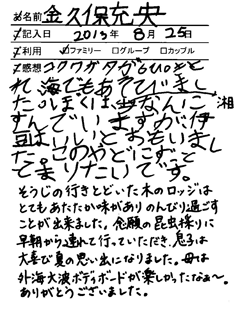 お名前 金久保充央
記入日 2013年 8月 25日
利用 ☑ファミリー □グループ □カップル
感想 コクワガタが6ぴきと
れ海でもあそびまし
た。ぼくは少なんこ 湘
すんでいますが伊
豆はいいとおもいまし
た。このやどにずっと
とまりたいです。
そうじの行きとどいた木のロッジは
とてもあたたか味がありのんびり過ごす
ことが出来ました。念願の昆虫採りに
早朝から連れて行っていただき、息子は
大喜び夏の思い出になりました。母は
外海大波ボディボードが楽しかったなぁ～。
ありがとうございました。